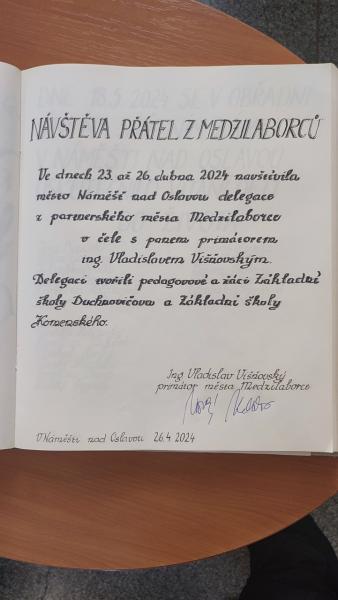 NÁVŠTĚVA PŘÁTEL Z MEDZILABORCŮ
Ve dnech 23. až 26. dubna 2024 navštívila
město Náměšť nad Oslavou delegace
z partnerského města Medzilaborce
v čele s panem primátorem
ing. Vladislavem Višňovským.
Delegaci tvořili pedagogové a žáci Základní
školy Duchnovičova a Základní školy
Komenského.
Ing Vladislav Višňovský
primátor města Medzilaborce
V Náměšti nad Oslavou 26.4.2024